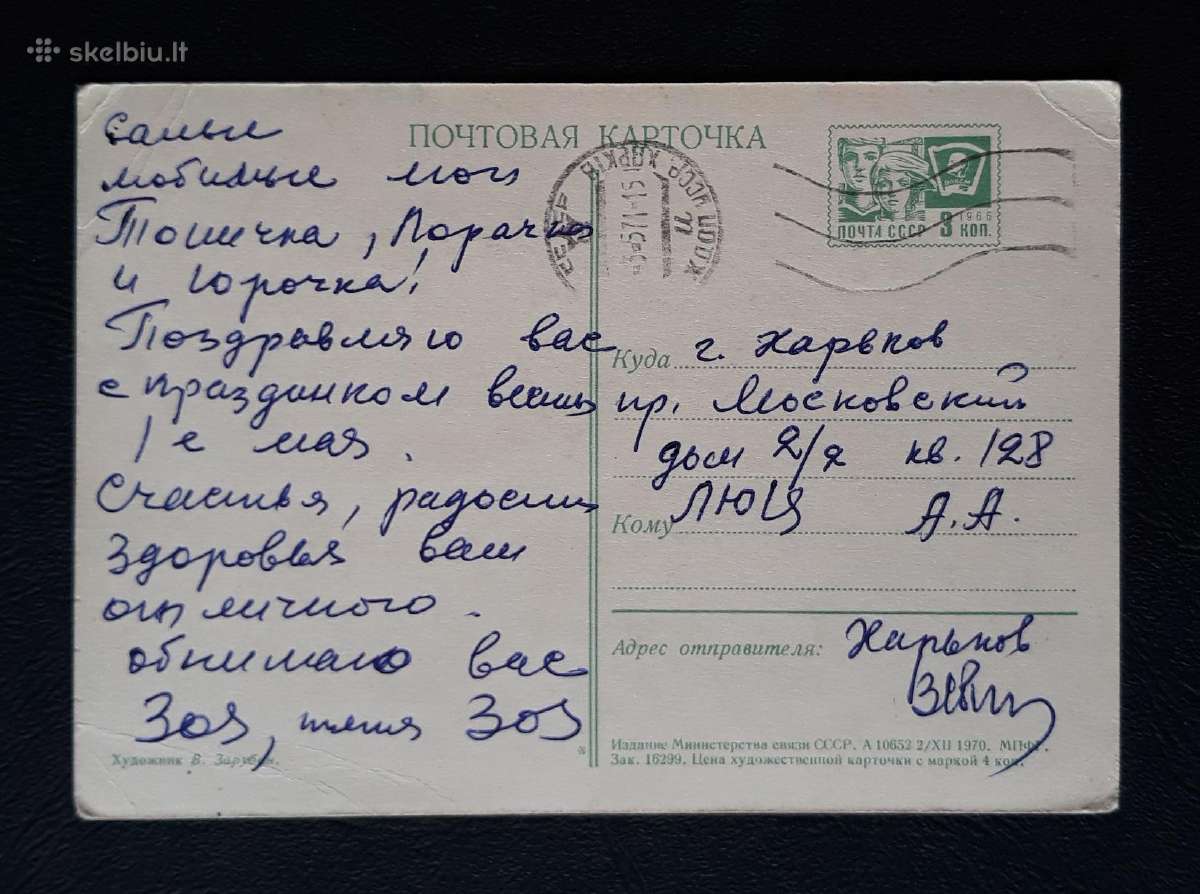 skelbiu.lt
ПОЧТОВАЯ КАРТОЧКА
Самые
любимые мои
Тошичка,
и Юрочка!
Поздравляю вас
с праздником
1е мая.
Счастья, радости
Здоровья вам
отличного.
обнимаю вас
Зоя, тётя Зоя
Художник В. Зарубин.
УССР ХАРКІВ
ПОЧТА СССР 3 КОП.
1966
Куда г. Харьков
пр. Московский
дом 2/2 кв. 128
Кому ЛЮЦ
А.А.
Адрес отправителя: Харьков
Издание Министерства связи СССР. А 10652 2/XII 1970. МПФГ.
Зак. 16299. Цена художественной карточки с маркой 4 коп.